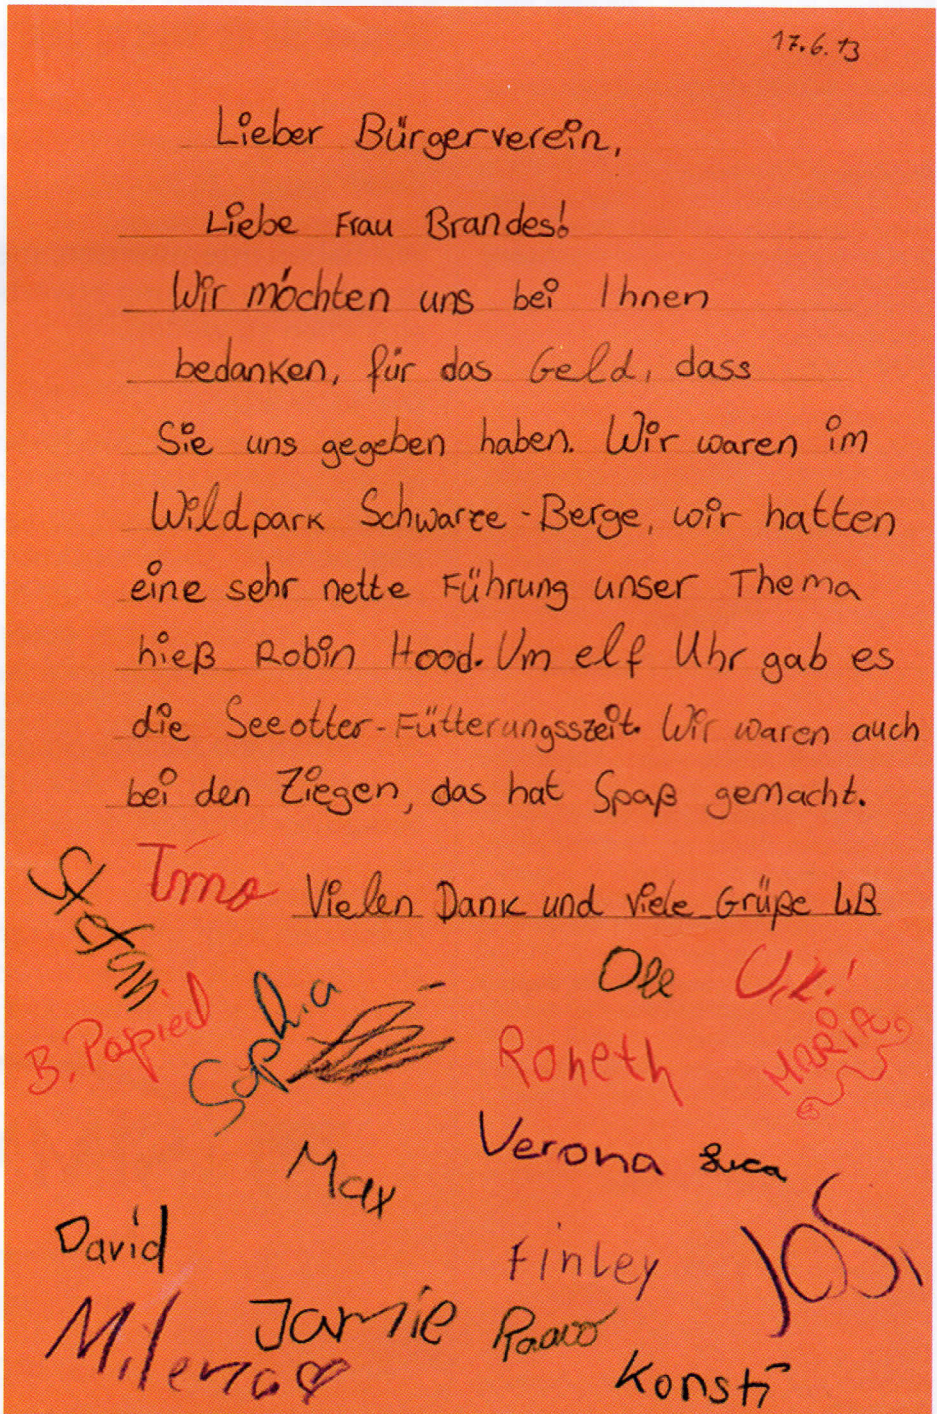 17.6.13
Lieber Bürgerverein,
Liebe Frau Brandes!
Wir möchten uns bei Ihnen
bedanken, für das Geld, dass
Sie uns gegeben haben. Wir waren im
Wildpark Schwarze-Berge, wir hatten
eine sehr nette Führung unser Thema
hieß Robin Hood. Um elf Uhr gab es
die Seeotter-Fütterungsszeit. Wir waren auch
bei den Ziegen, das hat Spaß gemacht.
Timo
Vielen Dank und viele Grüße 4B
Stefan
Ole
B. Papied
Sophia
Roneth
MARIA
Verona
Luca
Max
David
Finley
Josi
Milena
Jamie
Paavo
Konsti